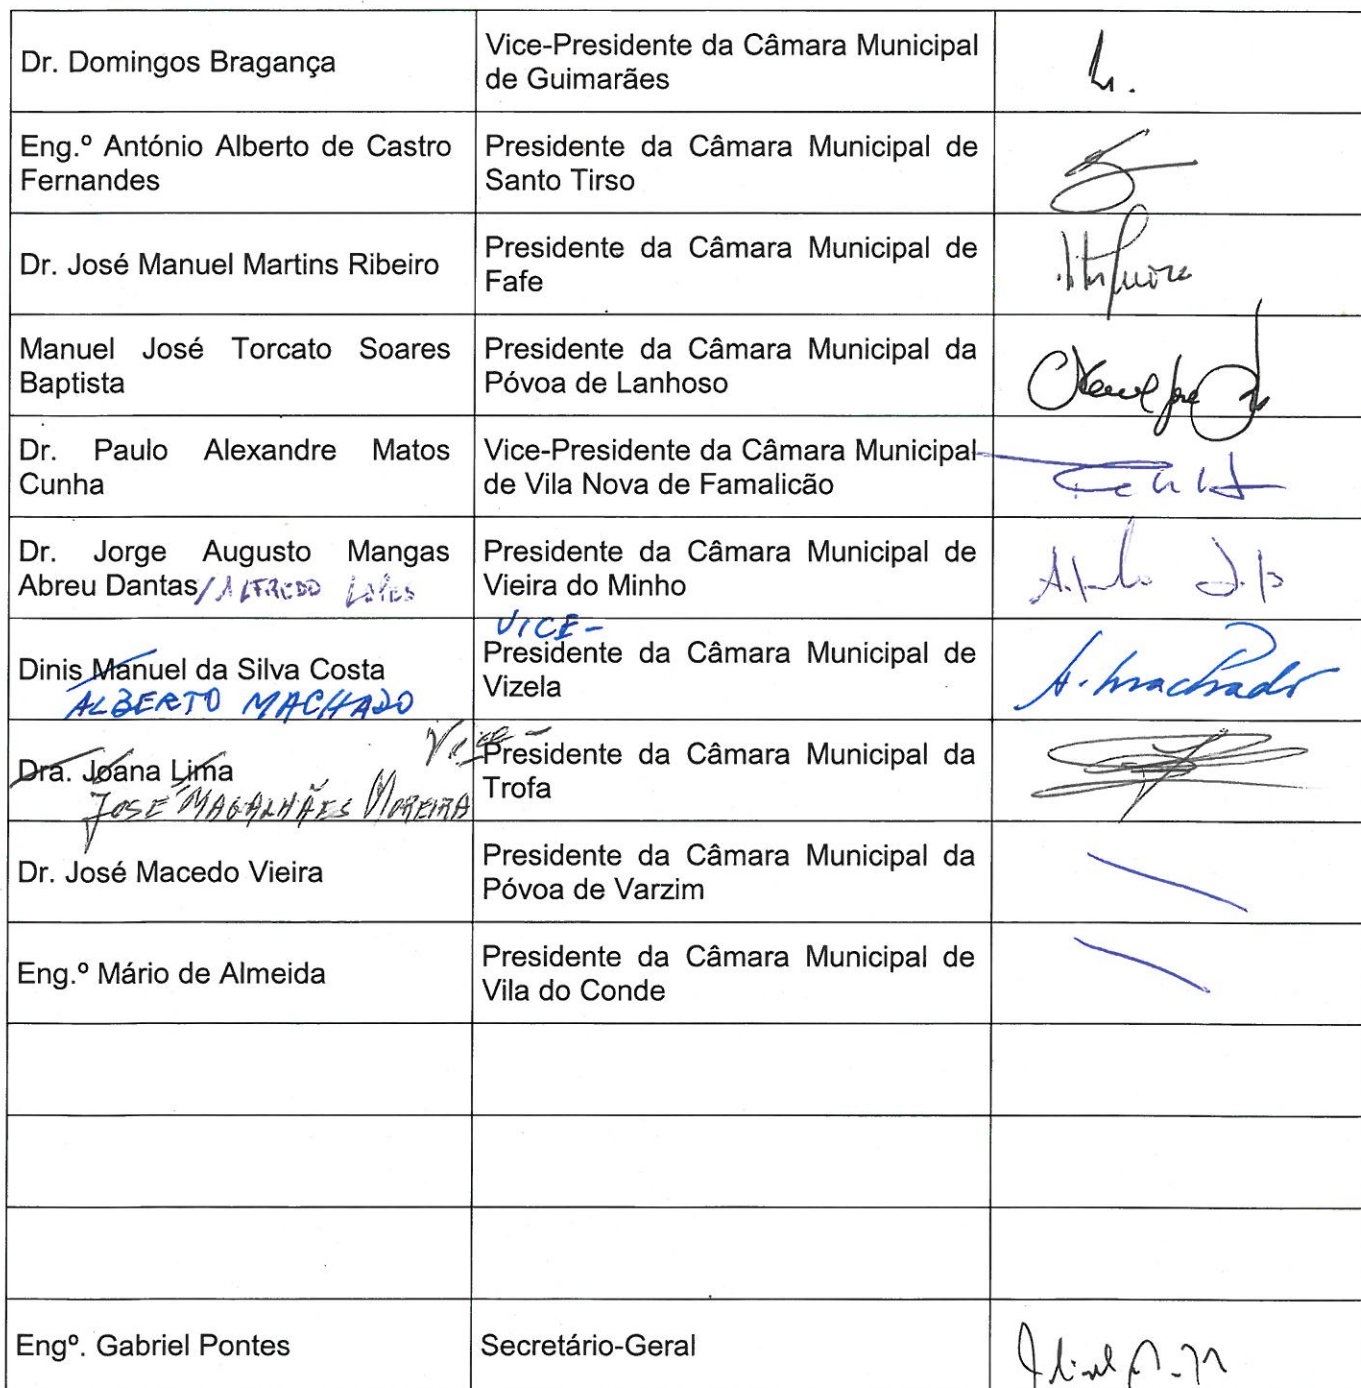 Dr. Domingos Bragança
Vice-Presidente da Câmara Municipal
de Guimarães
Eng.º António Alberto de Castro
Fernandes
Presidente da Câmara Municipal de
Santo Tirso
Dr. José Manuel Martins Ribeiro
Presidente da Câmara Municipal de
Fafe
Manuel José Torcato Soares
Baptista
Presidente da Câmara Municipal da
Póvoa de Lanhoso
Dr. Paulo Alexandre Matos
Cunha
Vice-Presidente da Câmara Municipal
de Vila Nova de Famalicão
Dr. Jorge Augusto Mangas
Abreu Dantas/ALFREDO Lopes
Presidente da Câmara Municipal de
Vieira do Minho
Dinis Manuel da Silva Costa
ALBERTO MACHADO
VICE-
Presidente da Câmara Municipal de
Vizela
A. Machado
Dra. Joana Lima
JOSÉ MAGALHÃES MOREIRA
Vice-
Presidente da Câmara Municipal da
Trofa
Dr. José Macedo Vieira
Presidente da Câmara Municipal da
Póvoa de Varzim
Eng.º Mário de Almeida
Presidente da Câmara Municipal de
Vila do Conde
Engº. Gabriel Pontes
Secretário-Geral